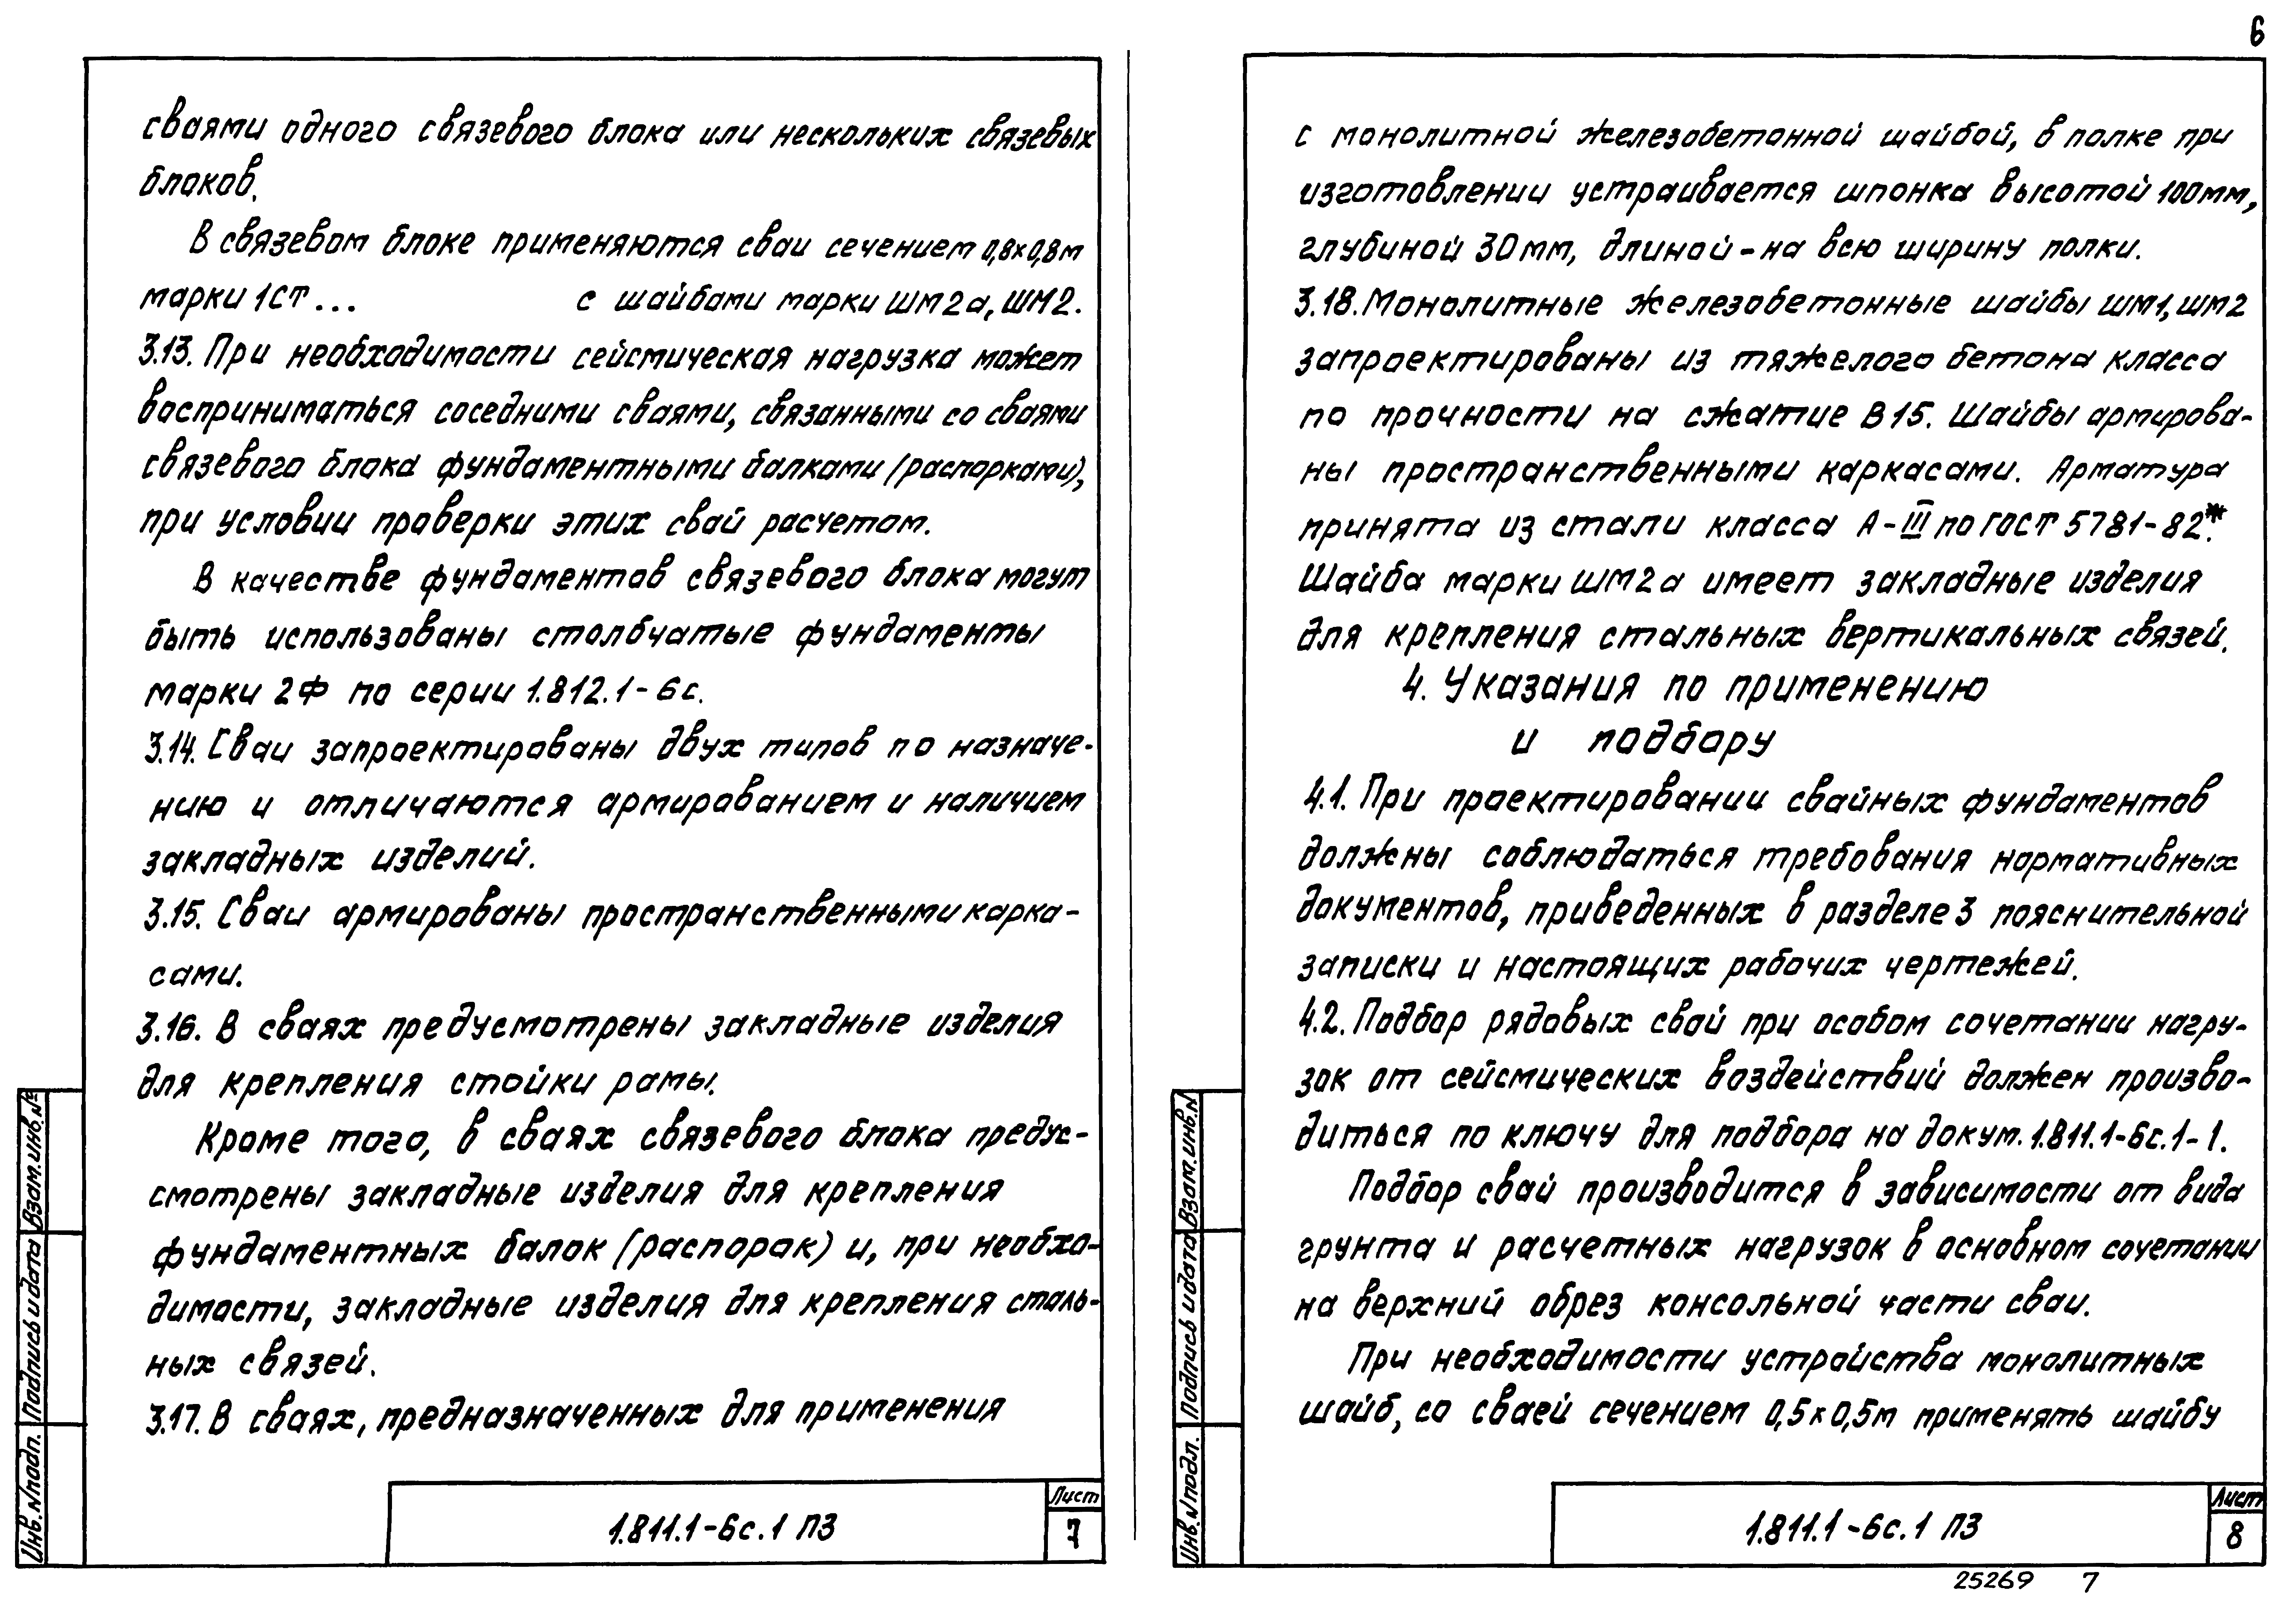 6
сваями одного связевого блока или нескольких связевых
блоков.
В связевом блоке применяются сваи сечением 0,8×0,8м
марки 1СТ... с шайбами марки ШМ2а, ШМ2.
3.13. При необходимости сейсмическая нагрузка может
восприниматься соседними сваями, связанными со сваями
связевого блока фундаментными балками (распорками),
при условии проверки этих свай расчетом.
В качестве фундаментов связевого блока могут
быть использованы столбчатые фундаменты
марки 2Ф по серии 1.812.1-6с.
3.14. Сваи запроектированы двух типов по назначе-
нию и отличаются армированием и наличием
закладных изделий.
3.15. Сваи армированы пространственными карка-
сами.
3.16. В сваях предусмотрены закладные изделия
для крепления стойки рамы.
Кроме того, в сваях связевого блока предус-
смотрены закладные изделия для крепления
фундаментных балок (распорок) и, при необхо-
димости, закладные изделия для крепления сталь-
ных связей.
3.17. В сваях, предназначенных для применения
Инв.№подл. Подпись и дата Взам.инв.№
1.811.1-6с.1 ПЗ
Лист
7
с монолитной железобетонной шайбой, в полке при
изготовлении устраивается шпонка высотой 100мм,
глубиной 30мм, длиной-на всю ширину полки.
3.18. Монолитные железобетонные шайбы ШМ1, ШМ2
запроектированы из тяжелого бетона класса
по прочности на сжатие В15. Шайбы армирова-
ны пространственными каркасами. Арматура
принята из стали класса А-III по ГОСТ 5781-82*.
Шайба марки ШМ2а имеет закладные изделия
для крепления стальных вертикальных связей.
4. Указания по применению
и подбору
4.1. При проектировании свайных фундаментов
должны соблюдаться требования нормативных
документов, приведенных в разделе 3 пояснительной
записки и настоящих рабочих чертежей.
4.2. Подбор рядовых свай при особом сочетании нагру-
зок от сейсмических воздействий должен произво-
диться по ключу для подбора на докум. 1.811.1-6с.1-1.
Подбор свай производится в зависимости от вида
грунта и расчетных нагрузок в основном сочетании
на верхний обрез консольной части сваи.
При необходимости устройства монолитных
шайб, со сваей сечением 0,5×0,5м применять шайбу
Инв.№подл. Подпись и дата Взам.инв.N
1.811.1-6с.1 ПЗ
Лист
8
25269 7